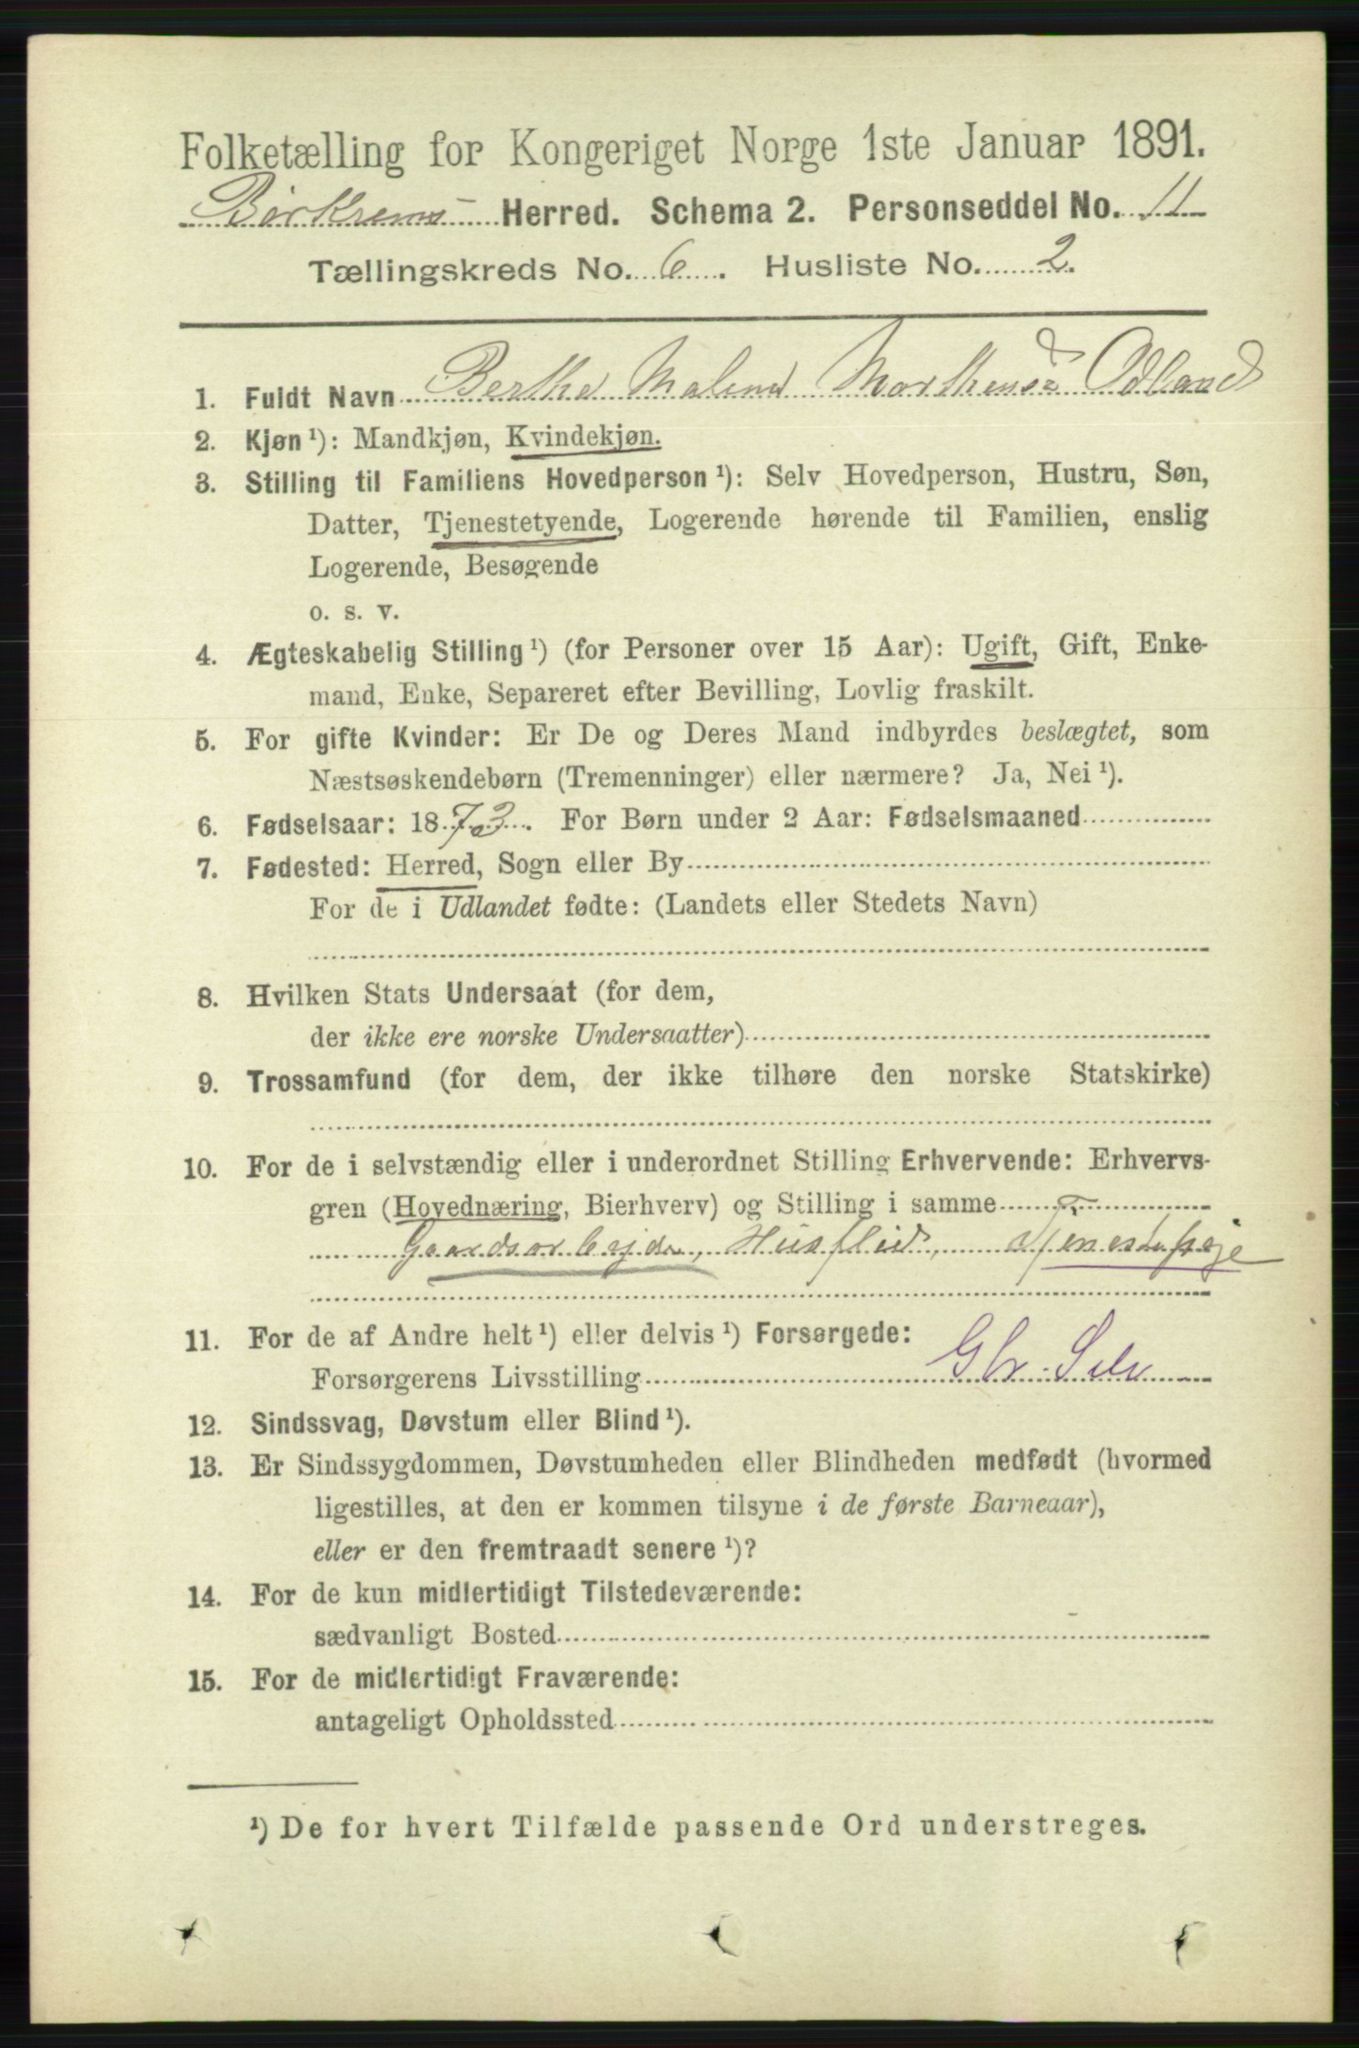 Folketælling for Kongeriget Norge 1ste Januar 1891.
Herred. Schema 2. Personseddel No. 11
Tællingskreds No. 6. Husliste No. 2.
1. Fuldt Navn Berthe Malene Odland
2. Kjøn ¹): Mandkjøn, Kvindekjøn.
3. Stilling til Familiens Hovedperson ¹): Selv Hovedperson, Hustru, Søn,
Datter, Tjenestetyende, Logerende hørende til Familien, enslig
Logerende, Besøgende
o. s. v.
4. Ægteskabelig Stilling ¹) (for Personer over 15 Aar): Ugift, Gift, Enke-
mand, Enke, Separeret efter Bevilling, Lovlig fraskilt.
5. For gifte Kvinder: Er De og Deres Mand indbyrdes beslægtet, som
Næstsøskendebørn (Tremenninger) eller nærmere? Ja, Nei ¹).
6. Fødselsaar: 1873. For Børn under 2 Aar: Fødselsmaaned
7. Fødested: Herred, Sogn eller By
For de i Udlandet fødte: (Landets eller Stedets Navn)
8. Hvilken Stats Undersaat (for dem,
der ikke ere norske Undersaatter)
9. Trossamfund (for dem, der ikke tilhøre den norske Statskirke)
10. For de i selvstændig eller i underordnet Stilling Erhvervende: Erhvervs-
gren (Hovednæring, Bierhverv) og Stilling i samme
Gaardsarbejde, Husflid, Tjenestepige
11. For de af Andre helt ¹) eller delvis ¹) Forsørgede:
Forsørgerens Livsstilling Gbr. Selv
12. Sindssvag, Døvstum eller Blind ¹).
13. Er Sindssygdommen, Døvstumheden eller Blindheden medfødt (hvormed
ligestilles, at den er kommen tilsyne i de første Barneaar),
eller er den fremtraadt senere ¹)?
14. For de kun midlertidigt Tilstedeværende:
sædvanligt Bosted
15. For de midlertidigt Fraværende:
antageligt Opholdssted
¹) De for hvert Tilfælde passende Ord understreges.